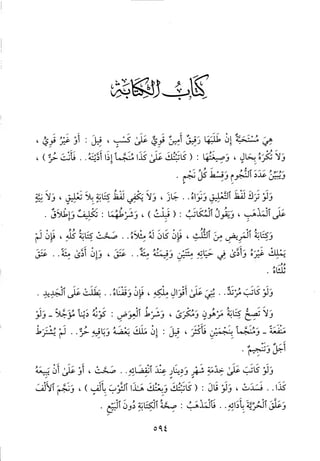 كتاب الكتابة
هِيَ مُسْتَحَبَّةٌ إِنْ طَلَبَهَا رَقِيقٌ أَمِينٌ قَوِيٌّ عَلَى كَسْبٍ ، قِيلَ : أَوْ غَيْرُ قَوِيٍّ ،
وَلَا تُكْرَهُ بِحَالٍ ، وَصِيغَتُهَا : ( كَاتَبْتُكَ عَلَى كَذَا مُنَجَّماً إِذَا أَدَّيْتَهُ . . فَأَنْتَ حُرٌّ ) ،
وَيُبَيِّنُ عَدَدَ النُّجُومِ وَقِسْطَ كُلِّ نَجْمٍ .
وَلَوْ تَرَكَ لَفْظَ التَّعْلِيقِ وَنَوَاهُ . . جَازَ ، وَلَا يَكْفِي لَفْظُ كِتَابَةٍ بِلَا تَعْلِيقٍ ، وَلَا نِيَّةٍ
عَلَى الْمَذْهَبِ ، وَيَقُولُ الْمُكَاتَبُ : ( قَبِلْتُ ) ، وَشَرْطُهُمَا : تَكْلِيفٌ وَإِطْلَاقٌ .
وَكِتَابَةُ الْمَرِيضِ مِنَ الثُّلُثِ ، فَإِنْ كَانَ لَهُ مِثْلَاهُ . . صَحَّتْ كِتَابَةُ كُلِّهِ ، فَإِنْ لَمْ
يَمْلِكْ غَيْرَهُ وَأَدَّى فِي حَيَاتِهِ مِئَتَيْنِ وَقِيمَتُهُ مِئَةٌ . . عَتَقَ ، وَإِنْ أَدَّى مِئَةً . . عَتَقَ
ثُلُثَاهُ .
وَلَوْ كَاتَبَ مُرْتَدٌّ . . بُنِيَ عَلَى أَقْوَالِ مِلْكِهِ ، فَإِنْ وَقَفْنَاهُ . . بَطَلَتْ عَلَى الْجَدِيدِ .
وَلَا تَصِحُّ كِتَابَةُ مَرْهُونٍ وَمُكْرىً ، وَشَرْطُ الْعِوَضِ : كَوْنُهُ دَيْناً مُؤَجَّلاً - وَلَوْ
مَنْفَعَةً - وَمُنَجَّماً بِنَجْمَيْنِ فَأَكْثَرَ ، قِيلَ : إِنْ مَلَكَ بَعْضَهُ وَبَاقِيهِ حُرٌّ . . لَمْ يُشْتَرَطْ
أَجَلٌ وَتَنْجِيمٌ .
وَلَوْ كَاتَبَ عَلَى خِدْمَةِ شَهْرٍ وَدِينَارٍ عِنْدَ انْقِضَائِهِ . . صَحَّتْ ، أَوْ عَلَى أَنْ يَبِيعَهُ
كَذَا . . فَسَدَتْ ، وَلَوْ قَالَ : ( كَاتَبْتُكَ وَبِعْتُكَ هَذَا الثَّوْبَ بِأَلْفٍ ) ، وَنَجَّمَ الْأَلْفَ
وَعَلَّقَ الْحُرِّيَّةَ بِأَدَائِهِ . . فَالْمَذْهَبُ : صِحَّةُ الْكِتَابَةِ دُونَ الْبَيْعِ .
٥٩٤